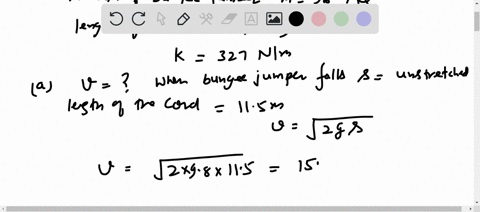 K = 327 N/m
(a) v = ? When bungee jumper falls s = unstretched
length of the cord = 11.5m
v = √2gs
v = √2×9.8×11.5 = 15.